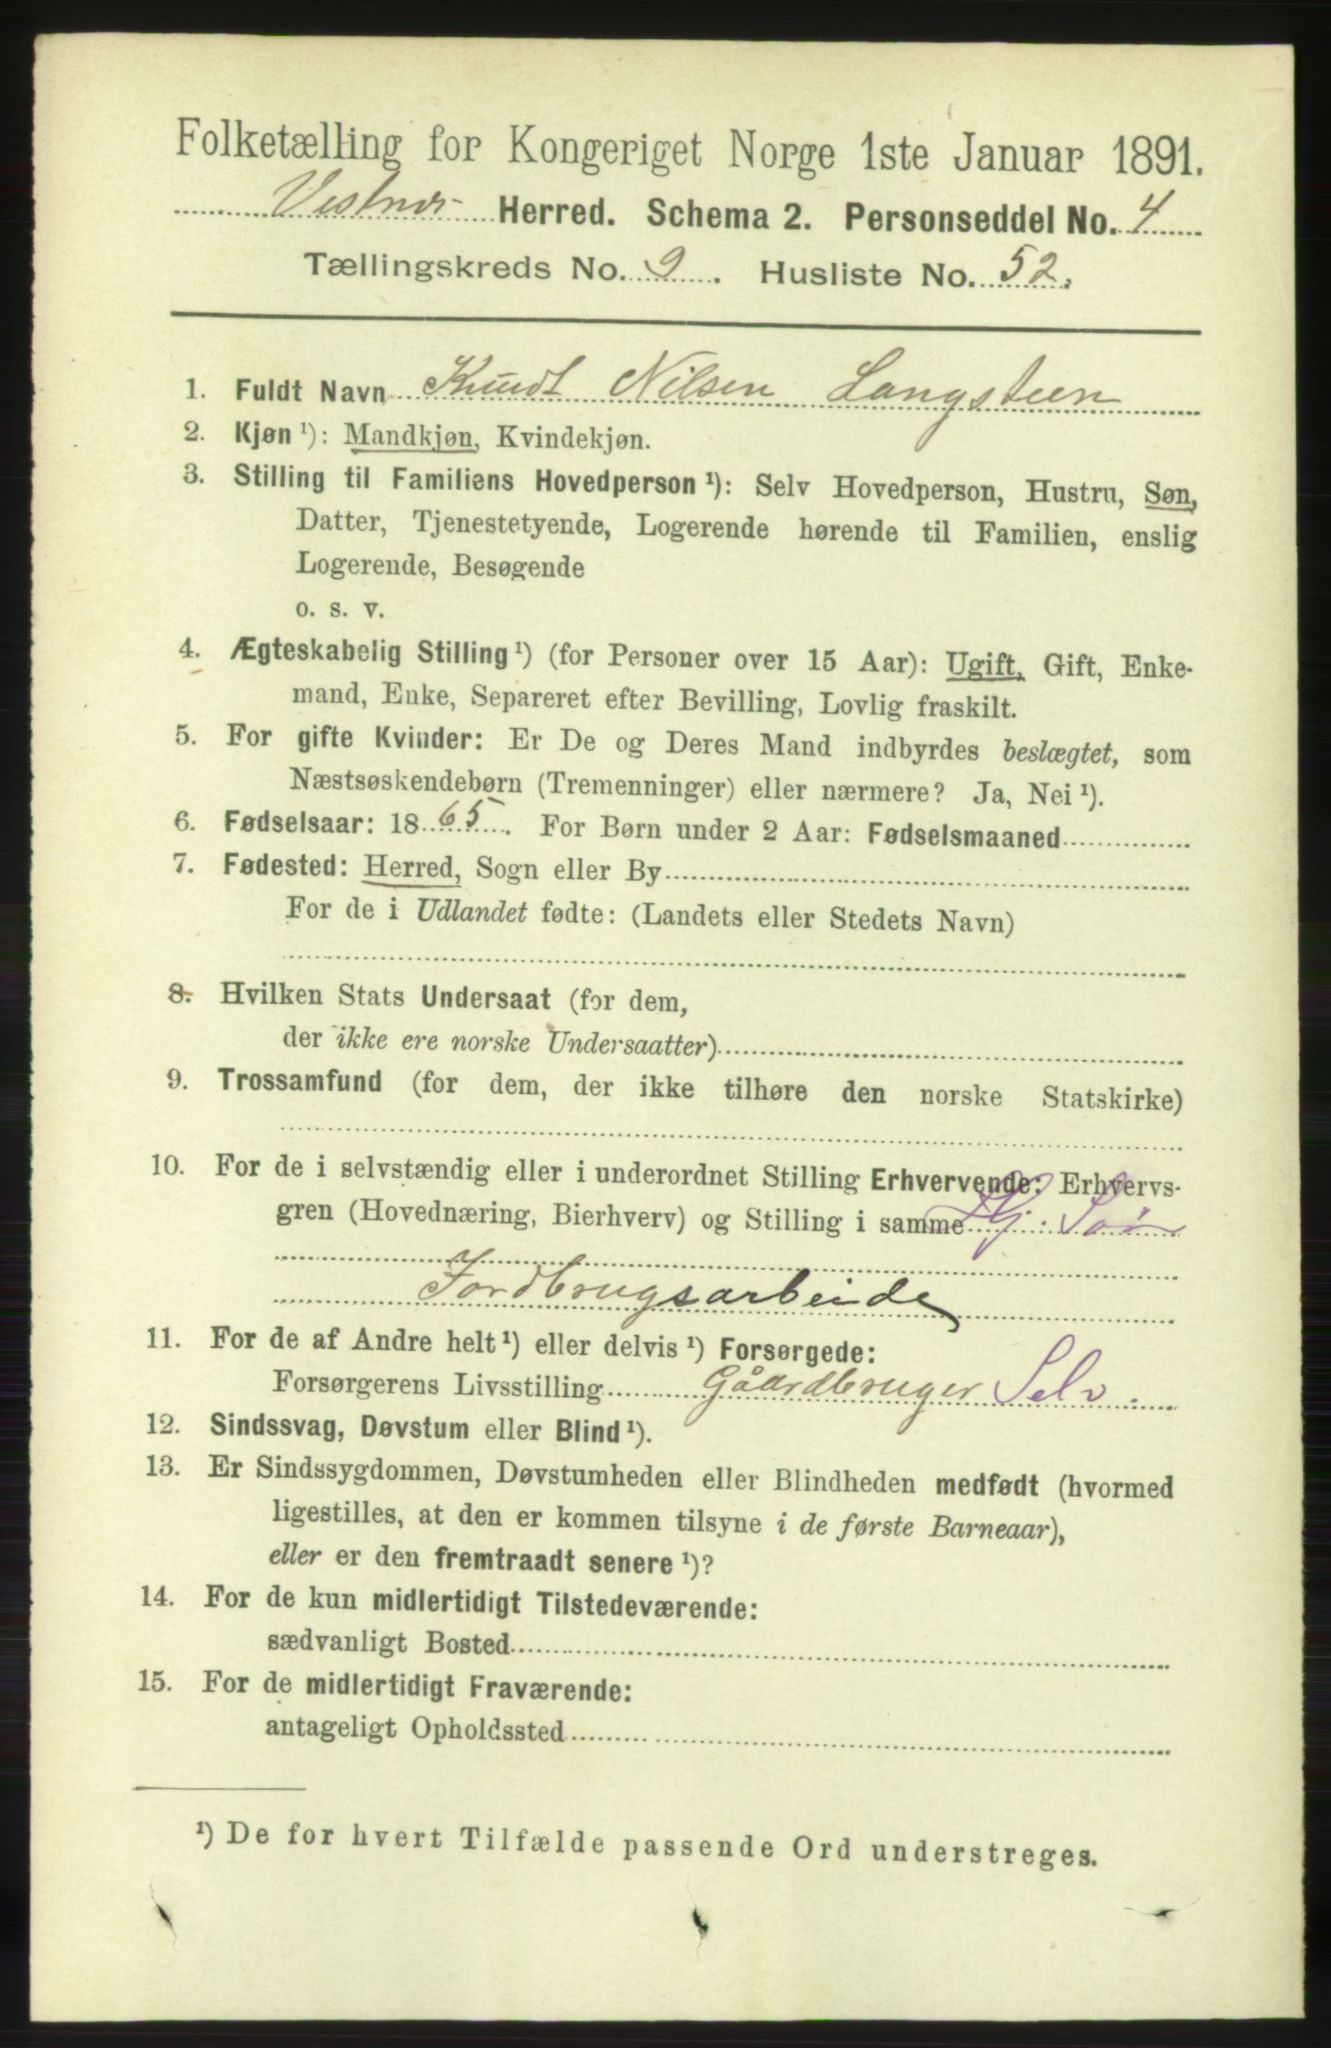 Folketælling for Kongeriget Norge 1ste Januar 1891.
Vestnes Herred. Schema 2. Personseddel No. 4
Tællingskreds No. 9. Husliste No. 52.
1. Fuldt Navn Knudt Nilsen Langsteen
2. Kjøn ¹): Mandkjøn, Kvindekjøn.
3. Stilling til Familiens Hovedperson ¹): Selv Hovedperson, Hustru, Søn,
Datter, Tjenestetyende, Logerende hørende til Familien, enslig
Logerende, Besøgende
o. s. v.
4. Ægteskabelig Stilling ¹) (for Personer over 15 Aar): Ugift, Gift, Enke-
mand, Enke, Separeret efter Bevilling, Lovlig fraskilt.
5. For gifte Kvinder: Er De og Deres Mand indbyrdes beslægtet, som
Næstsøskendebørn (Tremenninger) eller nærmere? Ja, Nei ¹).
6. Fødselsaar: 1865. For Børn under 2 Aar: Fødselsmaaned
7. Fødested: Herred, Sogn eller By
For de i Udlandet fødte: (Landets eller Stedets Navn)
8. Hvilken Stats Undersaat (for dem,
der ikke ere norske Undersaatter)
9. Trossamfund (for dem, der ikke tilhøre den norske Statskirke)
10. For de i selvstændig eller i underordnet Stilling Erhvervende: Erhvervs-
gren (Hovednæring, Bierhverv) og Stilling i samme Søn
Jordbrugsarbeide
11. For de af Andre helt ¹) eller delvis ¹) Forsørgede:
Forsørgerens Livsstilling Gåardbruger Selv.
12. Sindssvag, Døvstum eller Blind ¹).
13. Er Sindssygdommen, Døvstumheden eller Blindheden medfødt (hvormed
ligestilles, at den er kommen tilsyne i de første Barneaar),
eller er den fremtraadt senere ¹)?
14. For de kun midlertidigt Tilstedeværende:
sædvanligt Bosted
15. For de midlertidigt Fraværende:
antageligt Opholdssted
¹) De for hvert Tilfælde passende Ord understreges.